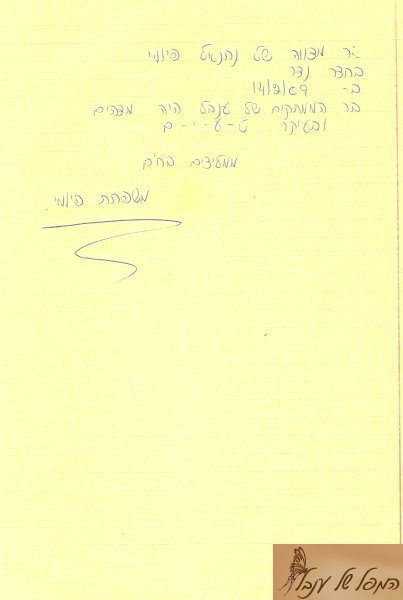 בר מצווה של נתנאל פיומי
בחצר נדר
ב- 14/9/09
בר הממתקים של ענבל היה מדהים
ובעיקר ט-ע-י-ם
ממליצים בחום
משפחת פיומי.
המפל של ענבל